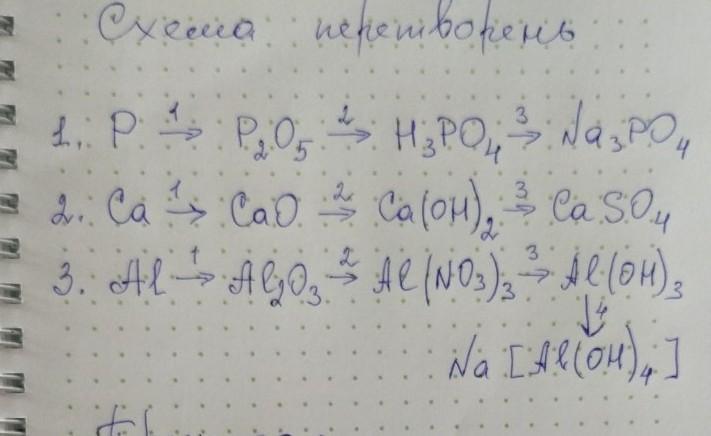 Схема перетворень
1. P 1→ P₂O₅ 2→ H₃PO₄ 3→ Na₃PO₄
2. Ca 1→ CaO 2→ Ca(OH)₂ 3→ CaSO₄
3. Al 1→ Al₂O₃ 2→ Al(NO₃)₃ 3→ Al(OH)₃
↓4
Na[Al(OH)₄]